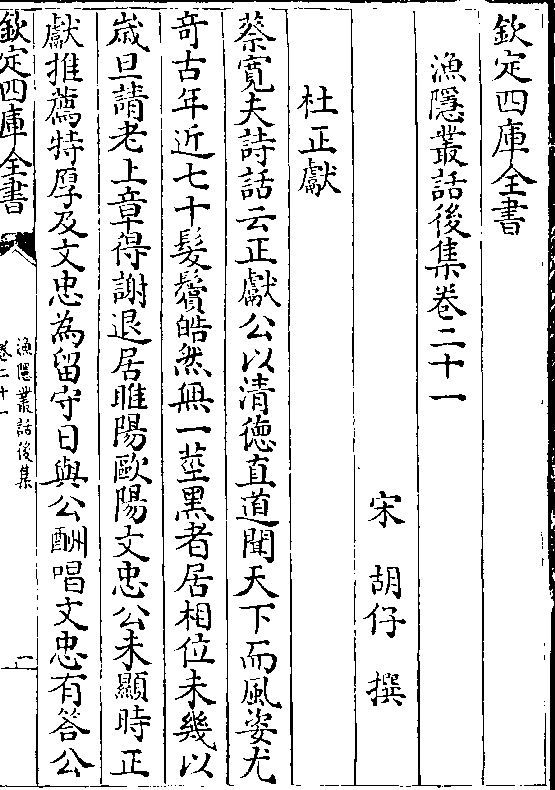 欽定四庫全書
漁隱叢話後集卷二十一
宋 胡仔 撰
杜正獻
蔡寛夫詩話云正獻公以清徳直道聞天下而風姿尤
竒古年近七十髮鬢皓然無一莖黑者居相位未幾以
嵗旦請老上章得謝退居睢陽歐陽文忠公未顯時正
獻推薦特厚及文忠為留守日與公酬唱文忠有答公
欽定四庫全書
漁隱叢話後集
卷二十一
一